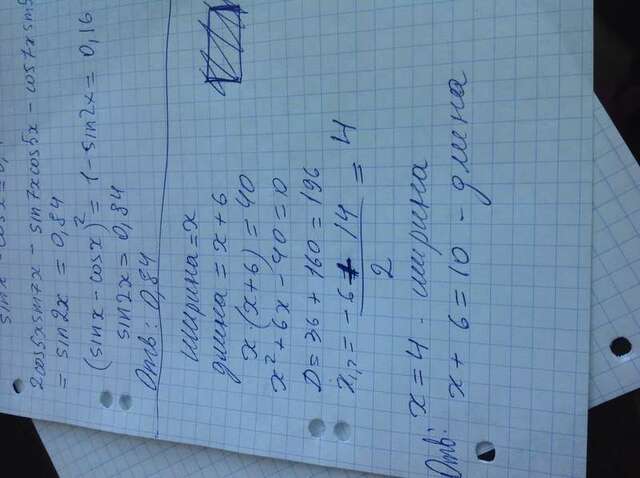 sinx - cosx = 0,4
2cos5xsin7x - sin7xcos5x - cos7xsin5
= sin2x = 0,84
(sinx - cosx)² = 1 - sin2x = 0,16
sin2x = 0,84
Отв: 0,84
ширина = x
длина = x + 6
x · (x+6) = 40
x² + 6x - 40 = 0
D = 36 + 160 = 196
x₁,₂ = (-6 + 14) / 2 = 4
Отв: x = 4 - ширина
x + 6 = 10 - длина